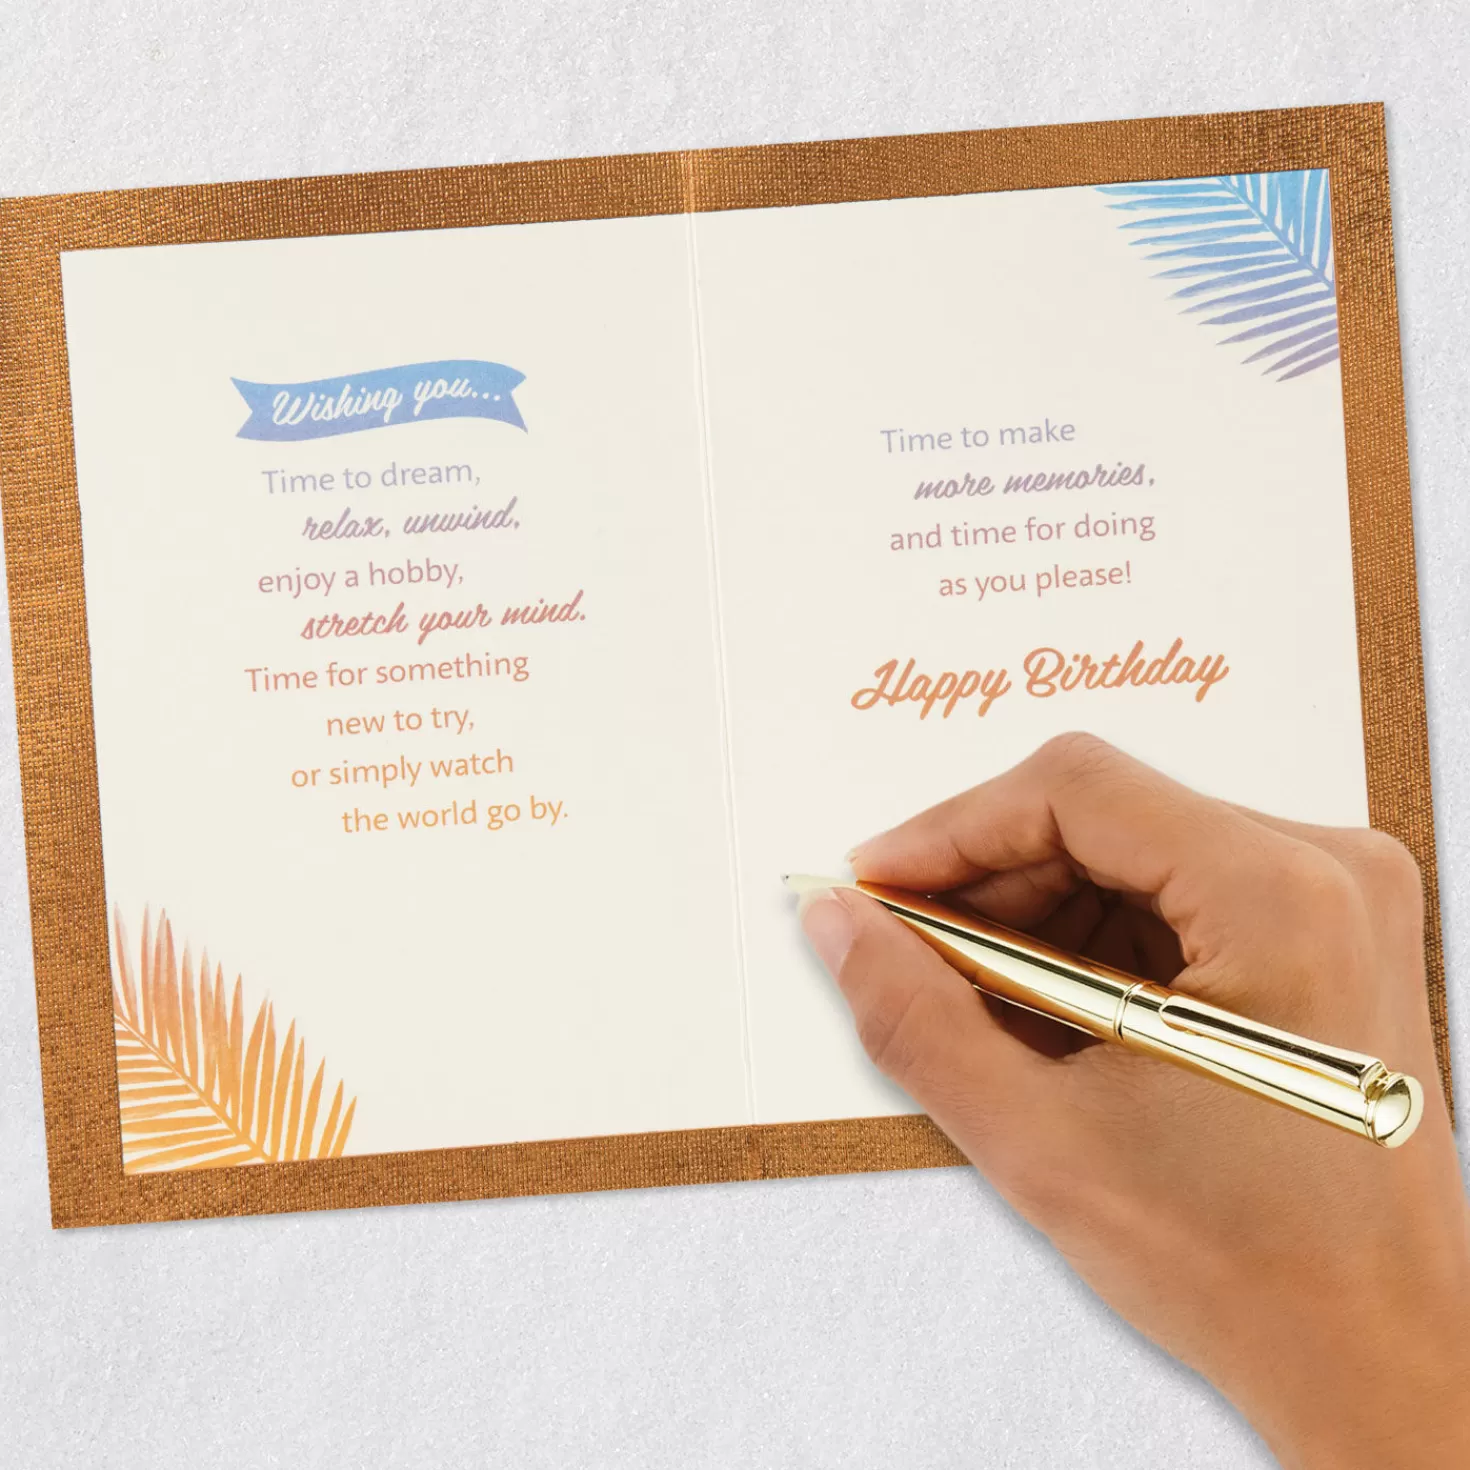 Wishing you...
Time to dream,
relax, unwind,
enjoy a hobby,
stretch your mind.
Time for something
new to try,
or simply watch
the world go by.
Time to make
more memories,
and time for doing
as you please!
Happy Birthday